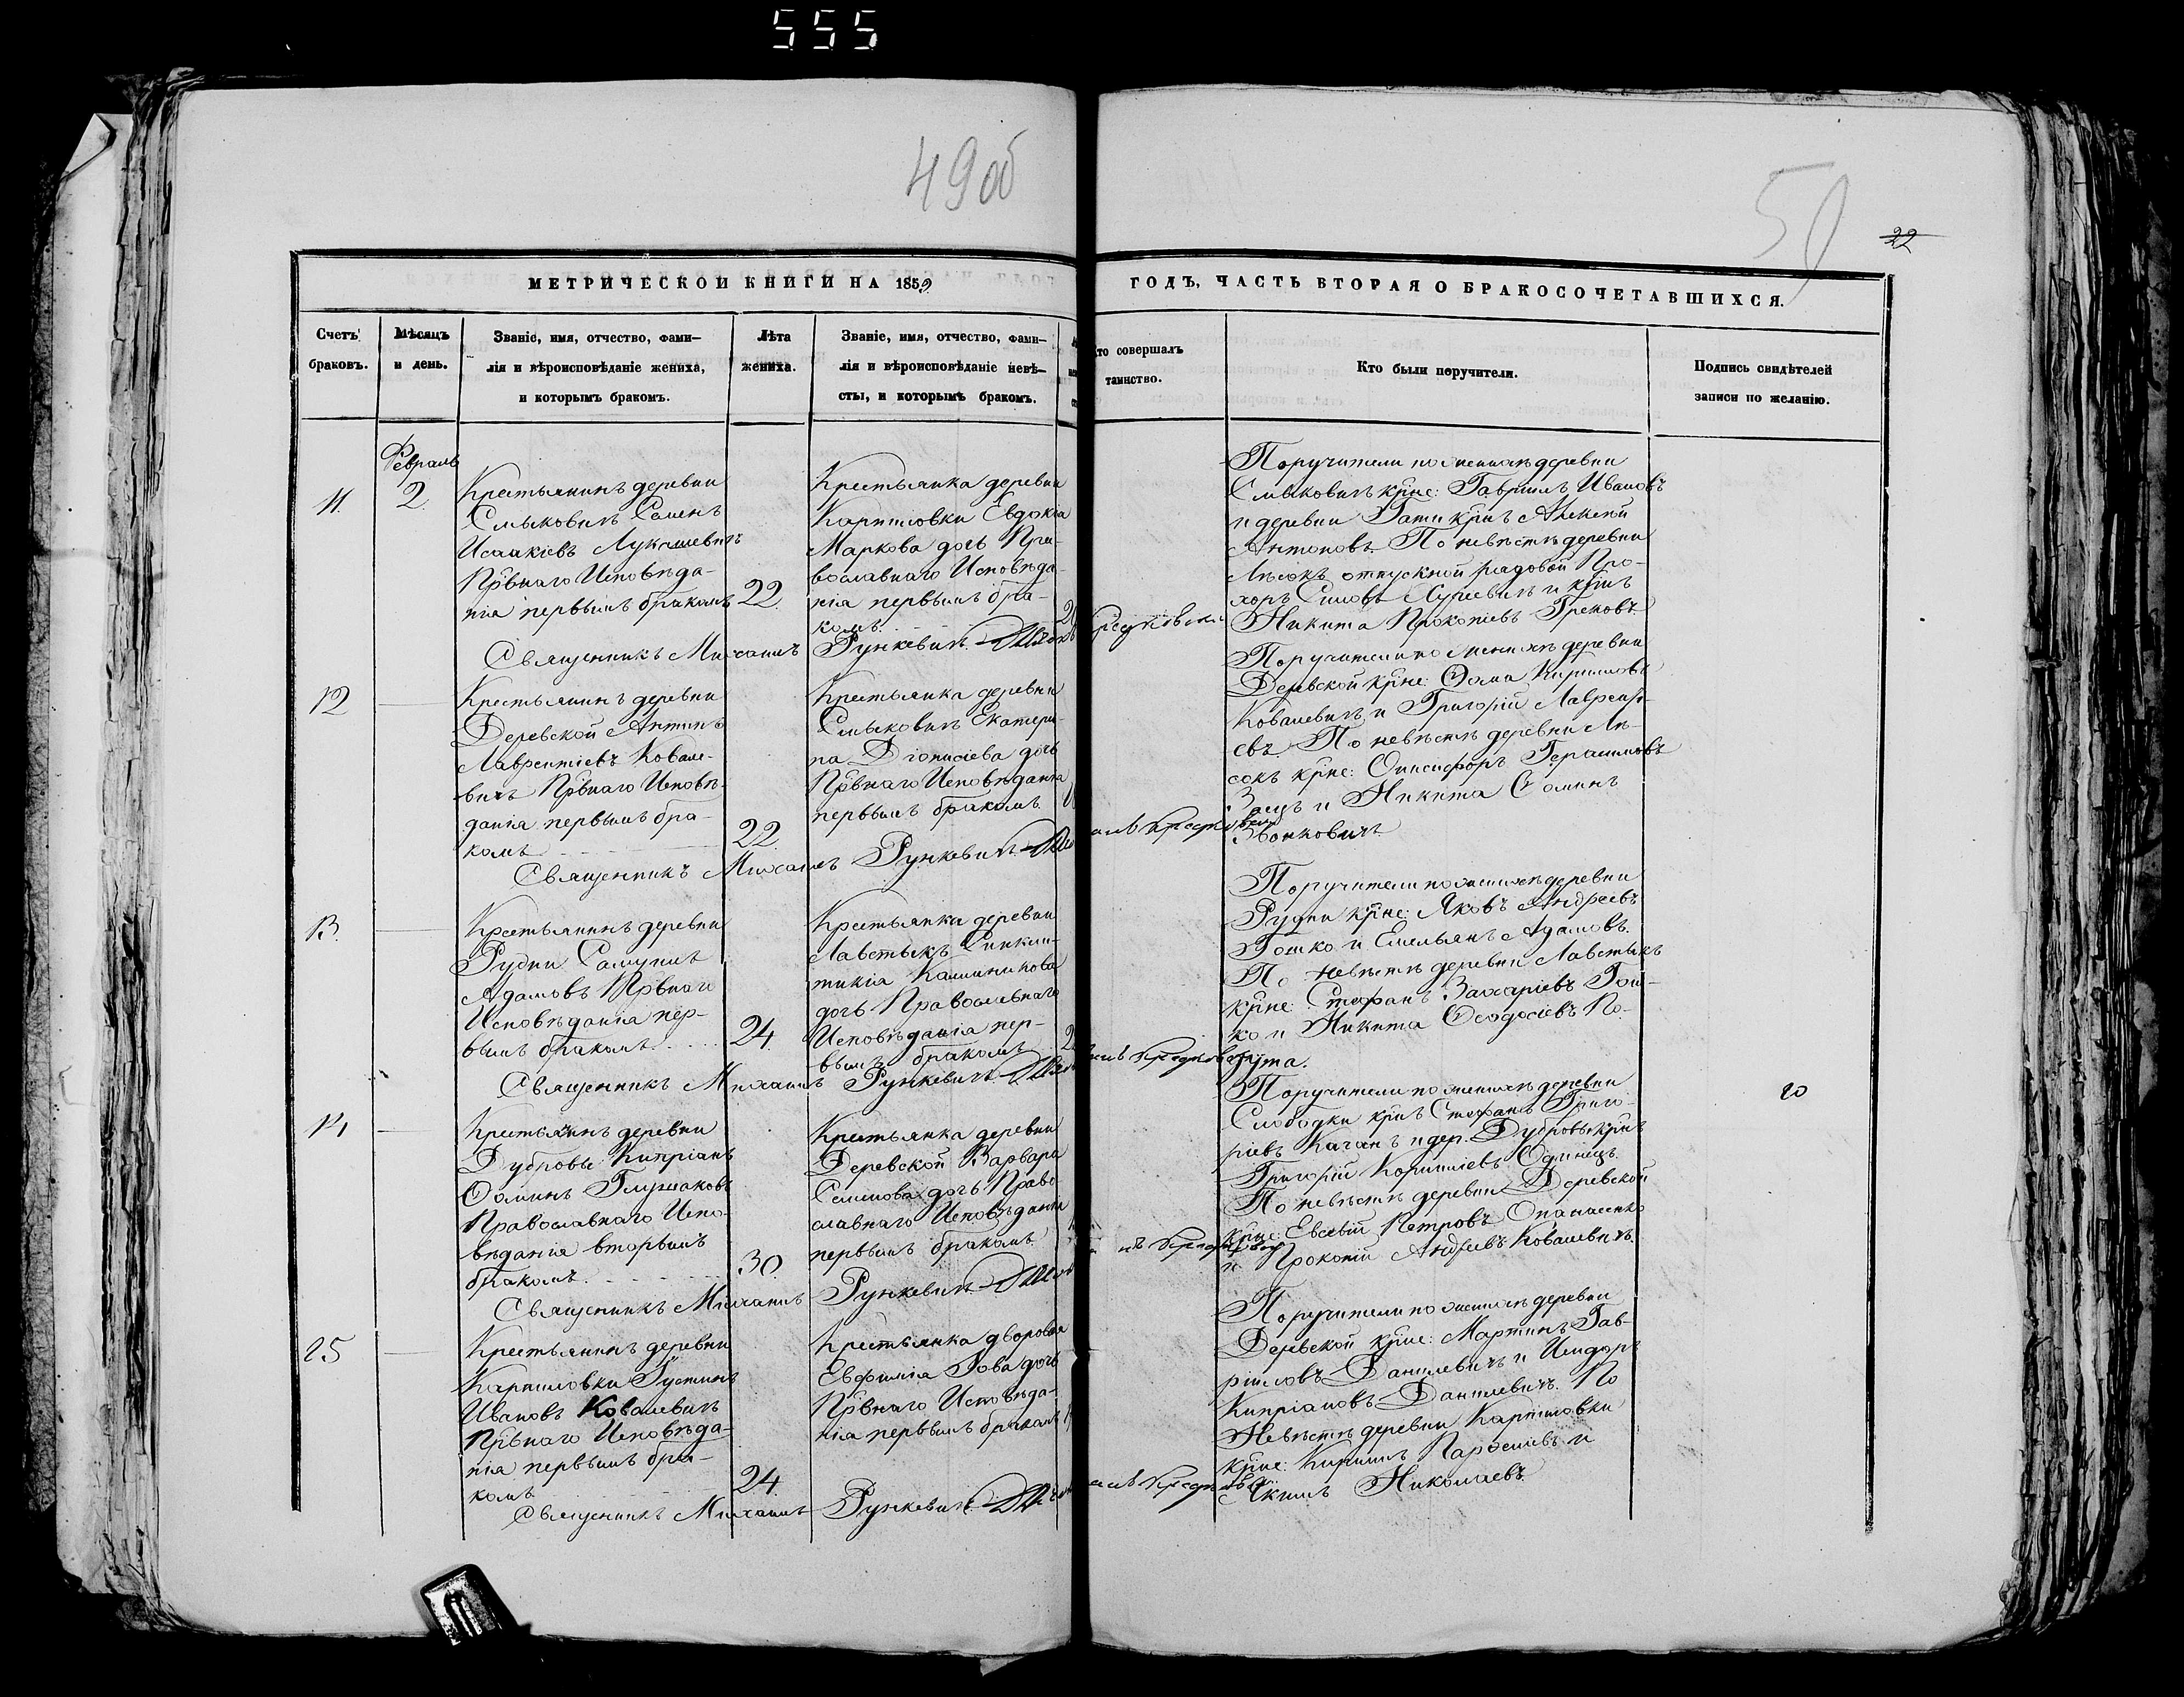 555
49об
50
22
МЕТРИЧЕСКОЙ КНИГИ НА 1859
ГОДЪ, ЧАСТЬ ВТОРАЯ О БРАКОСОЧЕТАВШИХСЯ.
Счетъ
браковъ.
Мѣсяцъ
и день.
Званіе, имя, отчество, фами-
лія и вѣроисповѣданіе жениха,
и которымъ бракомъ.
Лѣта
жениха.
Званіе, имя, отчество, фами-
лія и вѣроисповѣданіе невѣ-
сты, и которымъ бракомъ.
то совершалъ
таинство.
Кто были поручители.
Подпись свидѣтелей
записи по желанію.
Февраль
11.
2.
Крестьянинъ деревни
Смыковичъ Семенъ
Исаакіевъ Лукашевичъ
Првнаго Исповѣда-
нія первымъ бракомъ
22.
Крестьянка деревни
Карпиловки Евдокіа
Маркова дочь Пра-
вославнаго Исповѣда-
нія первымъ бра-
комъ.
Священникъ Михаилъ Рункевичъ
Поручители по женихѣ деревни
Смыковичъ крне: Гавріилъ Ивановъ
и деревни Гати крнъ Алексѣй
Антоновъ. По невѣстѣ деревни
Лѣсокъ отпускной рядовой Про-
хоръ Симовъ и крнъ
Никита Прокопіевъ Грековъ.
12
Крестьянинъ деревни
Деревской Антипъ
Лаврентіевъ Ковале-
вичъ Првнаго Исповѣ-
данія первымъ бра-
комъ
22.
Крестьянка деревни
Смыковичъ Екатери-
на Діонисіева дочь
Првнаго Исповѣданія
первымъ бракомъ.
Священникъ Михаилъ Рункевичъ
Поручители по женихѣ деревни
Деревской крне: Ѳома Кириловъ
Ковалевичъ и Григорій Лавренті-
евъ По невѣстѣ деревни Лѣ-
сокъ крне: Онисифоръ Герасимовъ
Заяцъ и Никита Ѳоминъ
Звонковичъ
13.
Крестьянинъ деревни
Рудни Самуилъ
Адамовъ Првнаго
Исповѣданія пер-
вымъ бракомъ.
24.
Крестьянка деревни
Лавстыкъ Синкли-
тикія Калиникова
дочь Православнаго
Исповѣданія пер-
вымъ бракомъ
Священникъ Михаилъ Рункевичъ
Поручители по женихѣ деревни
Рудни крне: Яковъ Андреевъ
Гошко и Емельянъ Адамовъ.
По невѣстѣ деревни Лавстыкъ
крне: Стефанъ Захаріевъ Гош-
ко и Никита Ѳеодосіевъ По-
гута.
20
14
Крестьянинъ деревни
Дубровы Кипріанъ
Ѳоминъ Глушаковъ
Православнаго Испо-
вѣданія вторымъ
бракомъ.
30.
Крестьянка деревни
Деревской Варвара
Семенова дочь Право
славнаго Исповѣданія
первымъ бракомъ.
Священникъ Михаилъ Рункевичъ
Поручители по женихѣ деревни
Слободки крнъ Стефанъ Григо-
ріевъ Качанъ и дер. Дубровы крнъ
Григорій Корниліевъ Одинецъ.
По невѣстѣ деревни Деревской
крне: Евсевій Петровъ Опанасенко
и Прокопій Андреевъ Ковалевичъ.
15
Крестьянинъ деревни
Карпиловки Густинъ
Ивановъ Ковалевичъ
Првнаго Исповѣда-
нія первымъ бра-
комъ
24.
Крестьянка дворовая
Евфимія Іова дочь
Првнаго Исповѣда-
нія первымъ бракомъ
Священникъ Михаилъ Рункевичъ
Поручители по женихѣ деревни
Деревской крне: Мартинъ Гав-
риловъ Данилевичъ и Исидоръ
Кипріановъ Данилевичъ. По
Невѣстѣ деревни Карпиловки
крне: Кирилъ Парфеніевъ и
Акимъ Николаевъ.